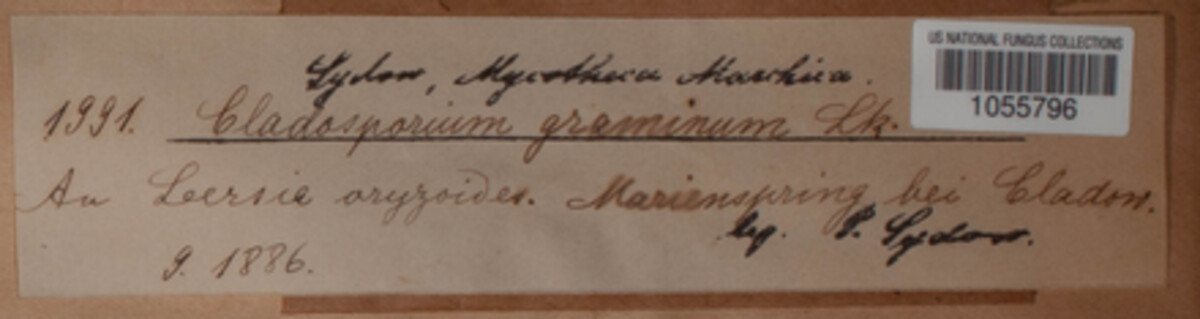 US NATIONAL FUNGUS COLLECTIONS
1055796
Sydow, Mycotheca Marchica.
1991. Cladosporium graminum Lk.
An Leersia oryzoides. Marienspring bei Cladow.
leg. P. Sydow.
9. 1886.